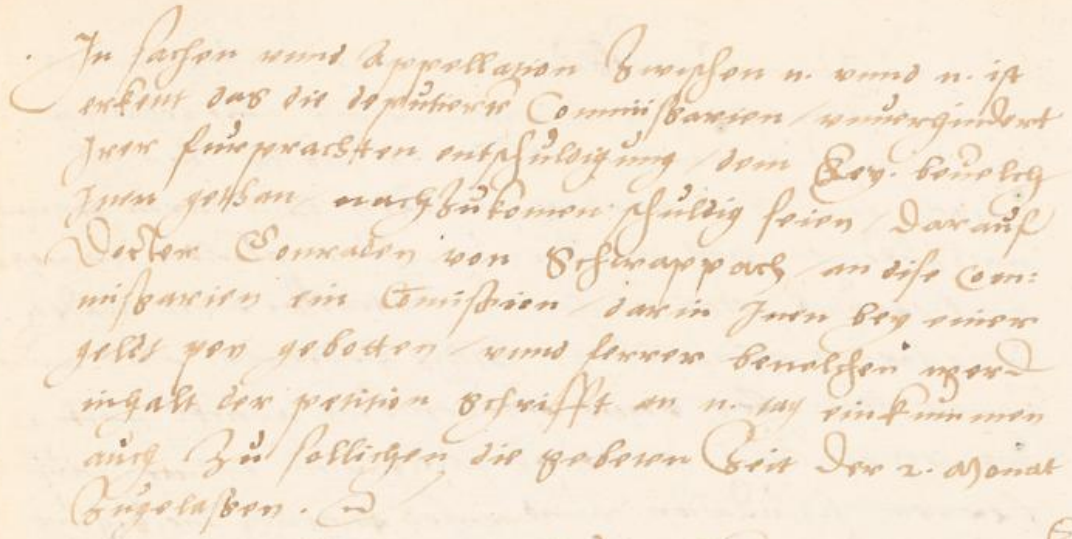 In sachen vnnd Appellazion Zwischen n. vnnd n. ist
erkent das die deputierte Commissarien / vnuerhindert
Irer fursprachsten entschuldigung / dem Key. beuelch
Inen gethan nachzukomen schuldig seien / darauf
Docter Conraden von Schwappach / an dise Com:
missarien ein Comission / darin Inen bey einer
geldt pen gebotten / vnnd ferrer beuelchen werd
inhalt der petition schrifft an n. tag einkummen
auch zu sollichen die gebeten Zeit der 2. Monat
Zugelassen.